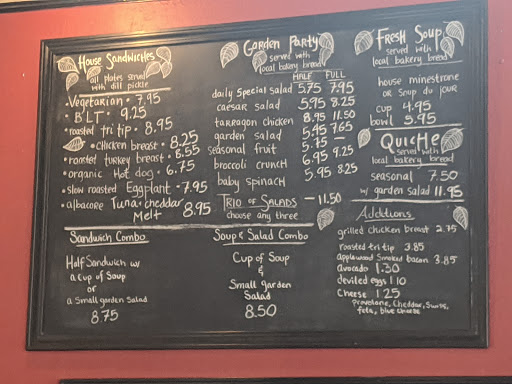 House Sandwiches
all plates served
with dill pickle
• Vegetarian • 7.95
• BLT • 9.25
• roasted tri tip • 8.95
• chicken breast • 8.25
• roasted turkey breast • 8.55
• organic Hot dog • 6.75
• slow roasted Eggplant • 7.95
• albacore Tuna • cheddar
Melt 8.95
Sandwich Combo
Half Sandwich w/
a cup of Soup
or
a Small garden Salad
8.75
Garden Party
served with
local bakery bread
HALF FULL
daily Special salad 5.75 7.95
caesar salad 5.95 8.25
tarragon chicken 8.95 11.50
garden salad 5.95 7.65
seasonal fruit 5.75 —
broccoli crunch 6.95 9.25
baby spinach 5.95 8.25
Trio of Salads — 11.50
choose any three
Soup & Salad Combo
Cup of Soup
&
Small garden
Salad
8.50
Fresh Soup
served with
local bakery bread
house minestrone
or Soup du jour
cup 4.95
bowl 5.95
Quiche
served with
local bakery bread
seasonal 7.50
w/ garden salad 11.95
Additions
grilled chicken breast 2.75
roasted tri tip 3.85
applewood smoked bacon 3.85
avocado 1.30
deviled eggs 1.10
cheese 1.25
provolone, cheddar, Swiss,
feta, blue cheese